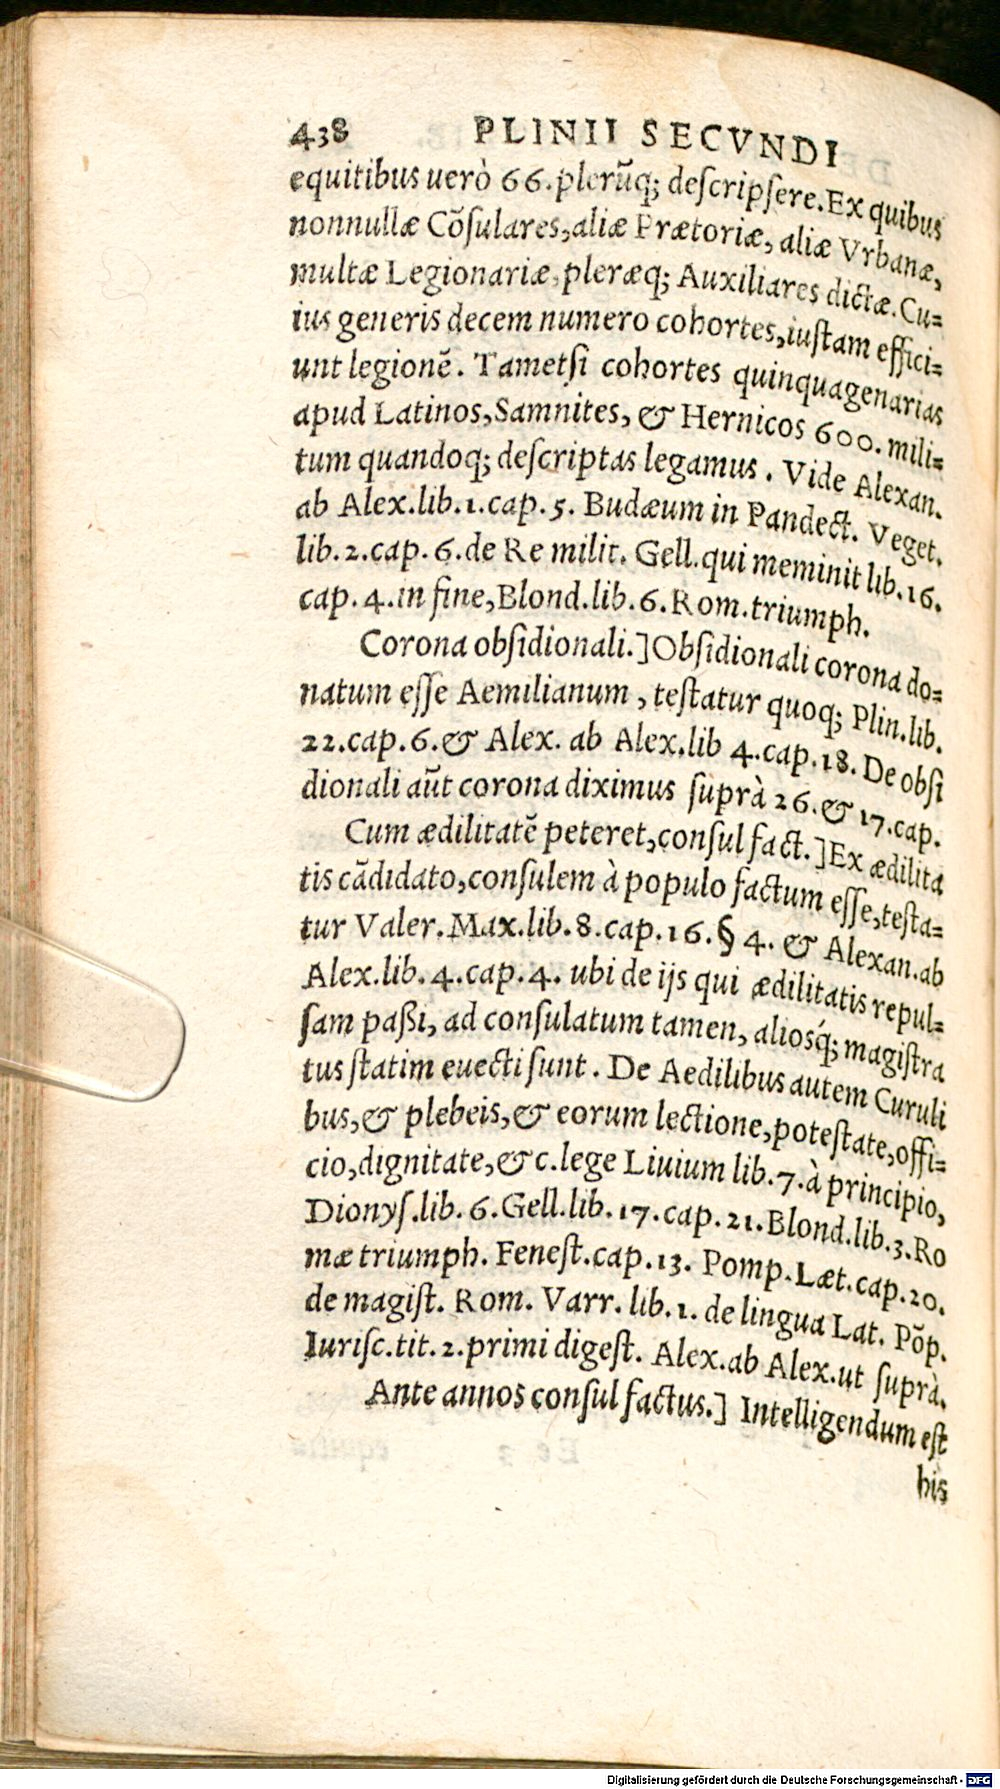 438 PLINII SECVNDI
equitibus uerò 66. plerũq; deſcripſere. Ex quibus
nonnullæ Cõſulares, aliæ Prætoriæ, aliæ Vrbanæ,
multæ Legionariæ, pleræq; Auxiliares dictæ. Cu=
ius generis decem numero cohortes, iuſtam effici=
unt legionẽ. Tametſi cohortes quinquagenarias
apud Latinos, Samnites, & Hernicos 600. mili=
tum quandoq; deſcriptas legamus. Vide Alexan.
ab Alex. lib. 1. cap. 5. Budæum in Pandect. Veget.
lib. 2. cap. 6. de Re milit. Gell. qui meminit lib. 16.
cap. 4. in fine, Blond. lib. 6. Rom. triumph.
Corona obſidionali.] Obſidionali corona do=
natum eſſe Aemilianum, teſtatur quoq; Plin. lib.
22. cap. 6. & Alex. ab Alex. lib 4. cap. 18. De obſi
dionali aũt corona diximus ſuprà 26. & 17. cap.
Cum ædilitatẽ peteret, conſul fact.] Ex ædilita
tis cãdidato, conſulem à populo factum eſſe, teſta=
tur Valer. Max. lib. 8. cap. 16. § 4. & Alexan. ab
Alex. lib. 4. cap. 4. ubi de ijs qui ædilitatis repul=
ſam paßi, ad conſulatum tamen, aliosq́; magiſtra
tus ſtatim euecti ſunt. De Aedilibus autem Curuli
bus, & plebeis, & eorum lectione, poteſtate, offi=
cio, dignitate, & c. lege Liuium lib. 7. à principio,
Dionyſ. lib. 6. Gell. lib. 17. cap. 21. Blond. lib. 3. Ro
mæ triumph. Feneſt. cap. 13. Pomp. Læt. cap. 20.
de magiſt. Rom. Varr. lib. 1. de lingua Lat. Põp.
Iuriſc. tit. 2. primi digeſt. Alex. ab Alex. ut ſuprà.
Ante annos conſul factus.] Intelligendum eſt
his
Digitalisierung gefördert durch die Deutsche Forschungsgemeinschaft - DFG